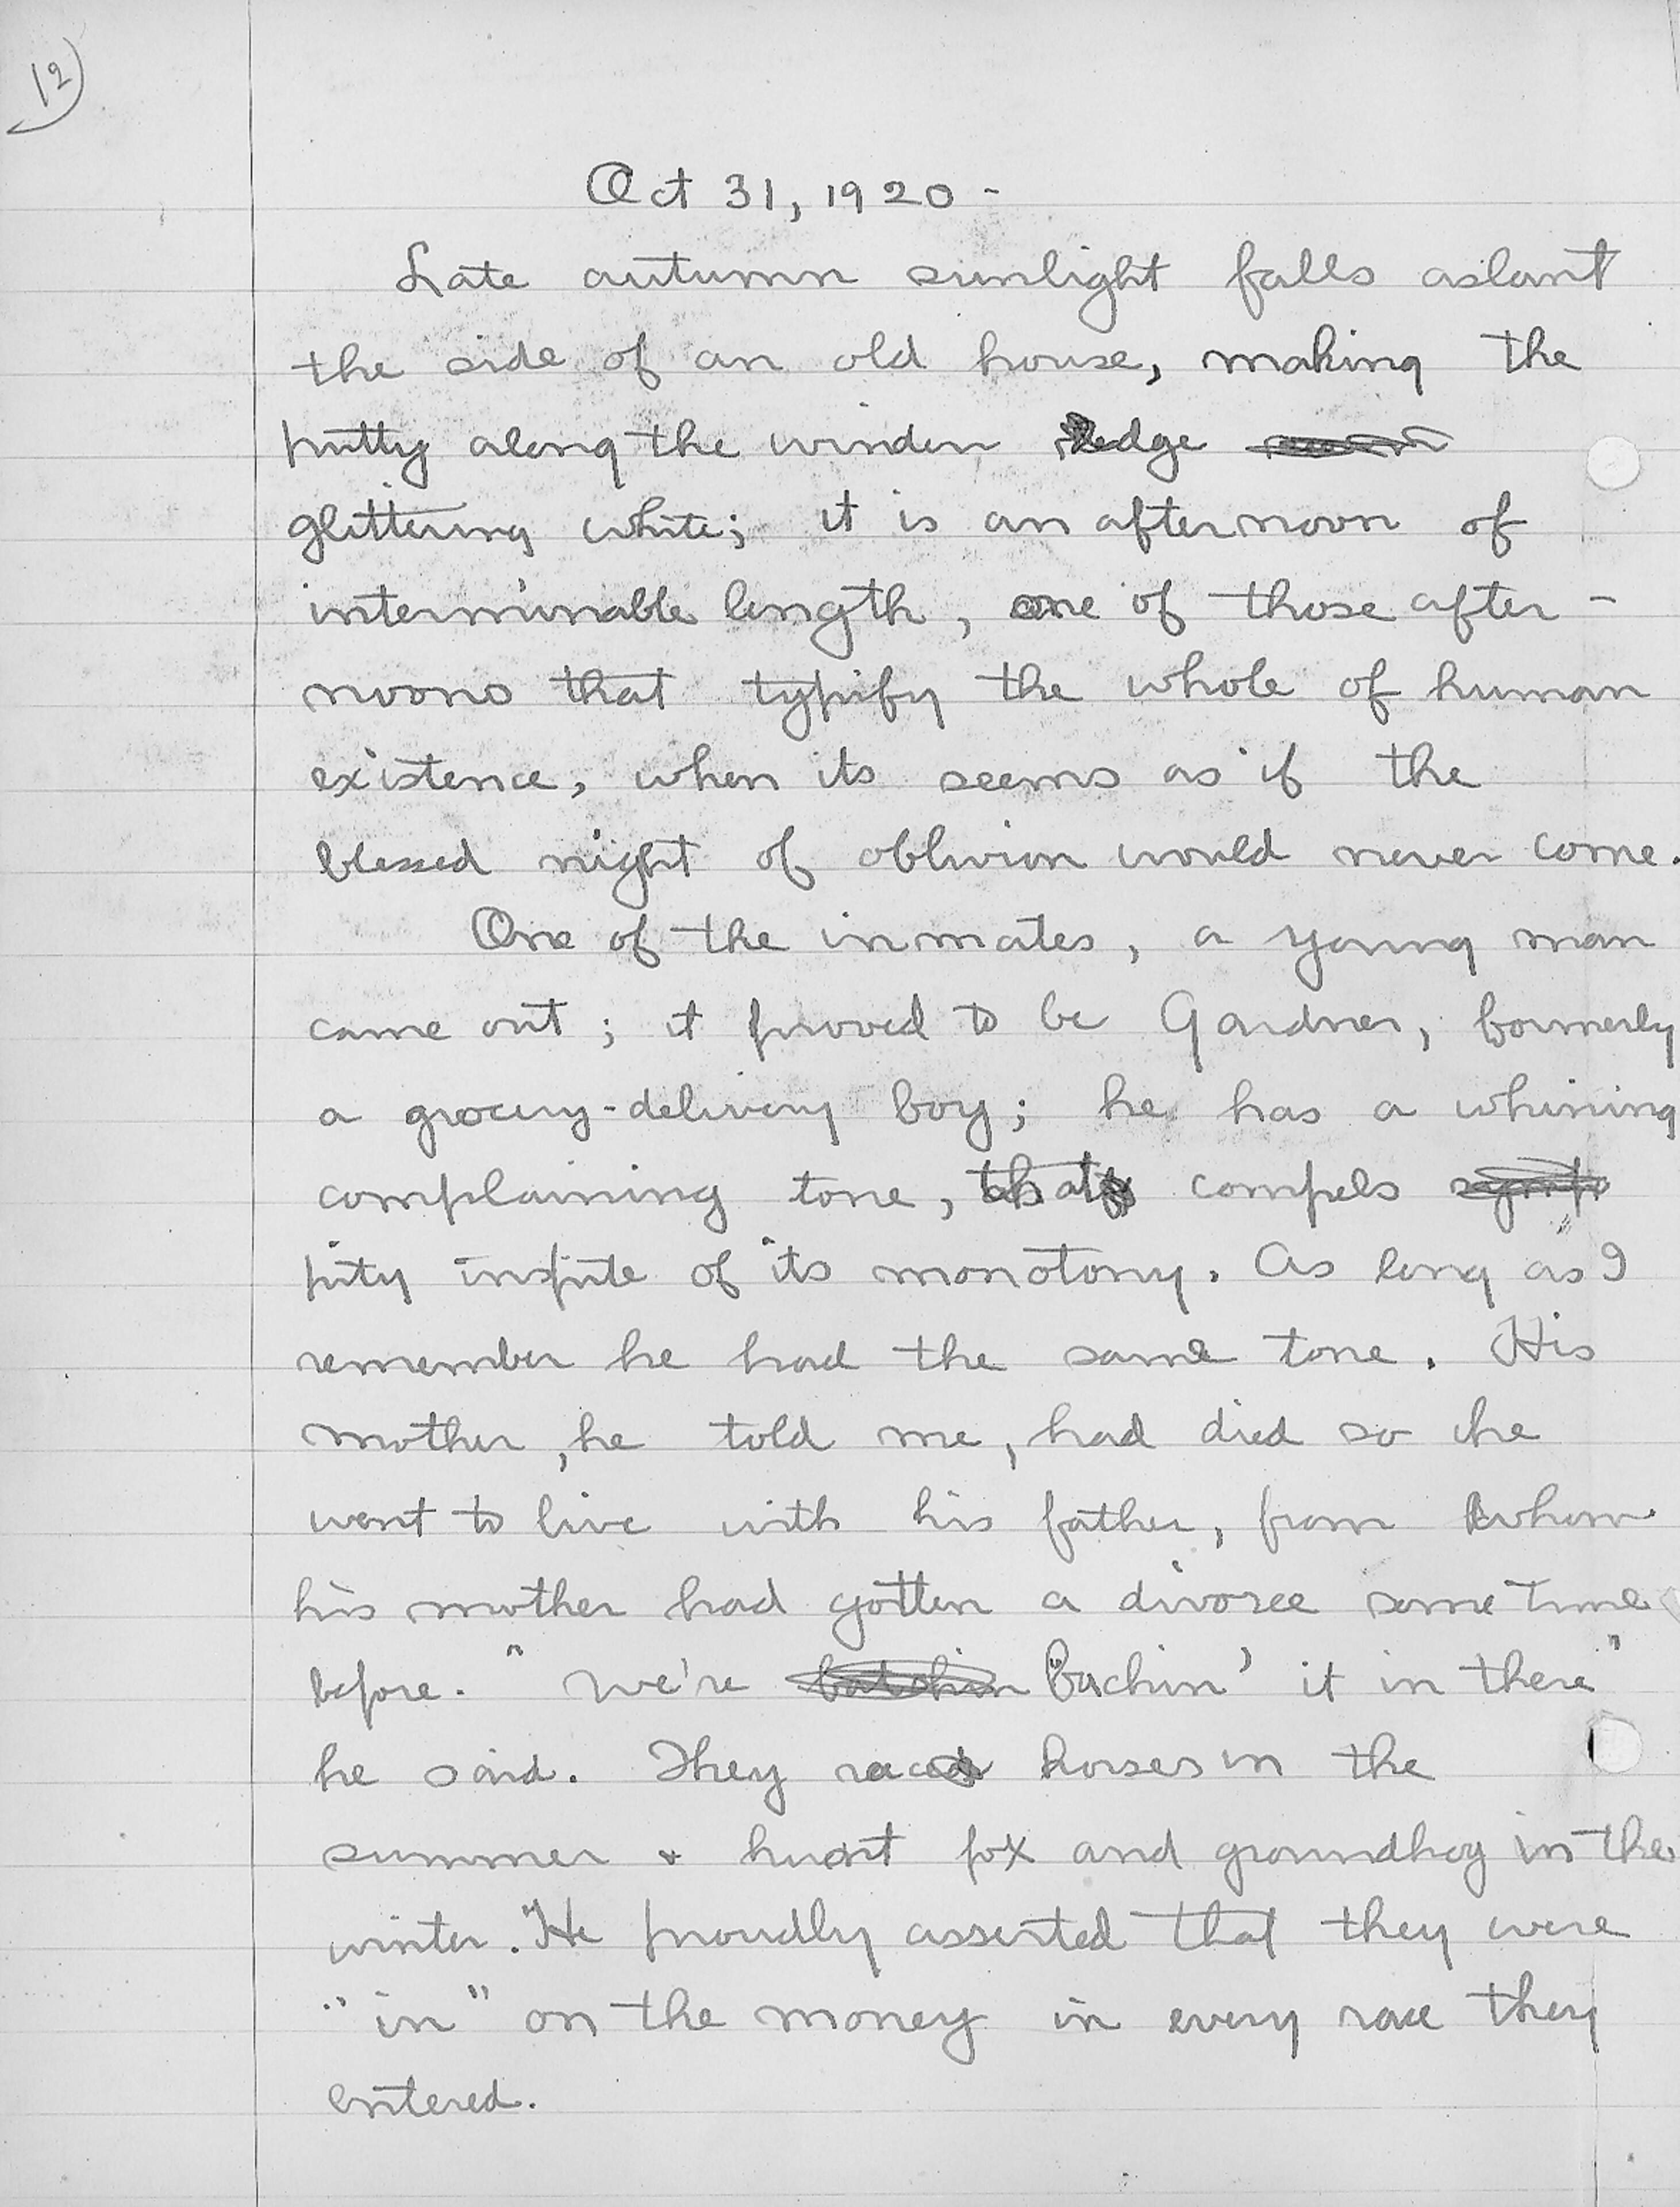 12)
Oct 31, 1920 -
Late autumn sunlight falls aslant
the side of an old house, making the
putty along the window ledge
glittering white; it is an afternoon of
interminable length, one of those after-
noons that typify the whole of human
existence, when its seems as if the
blessed night of oblivion would never come.
One of the inmates, a young man
came out; it proved to be Gardner, formerly
a grocery-delivery boy; he has a whining
complaining tone, that compels symp
pity inspite of its monotony. As long as I
remember he had the same tone. His
mother, he told me, had died so he
went to live with his father, from whom
his mother had gotten a divorce some time
before. "We're batchin "Bachin' it in there"
he said. They race horses in the
summer + hunt fox and groundhog in the
winter. He proudly asserted that they were
"in" on the money in every race they
entered.